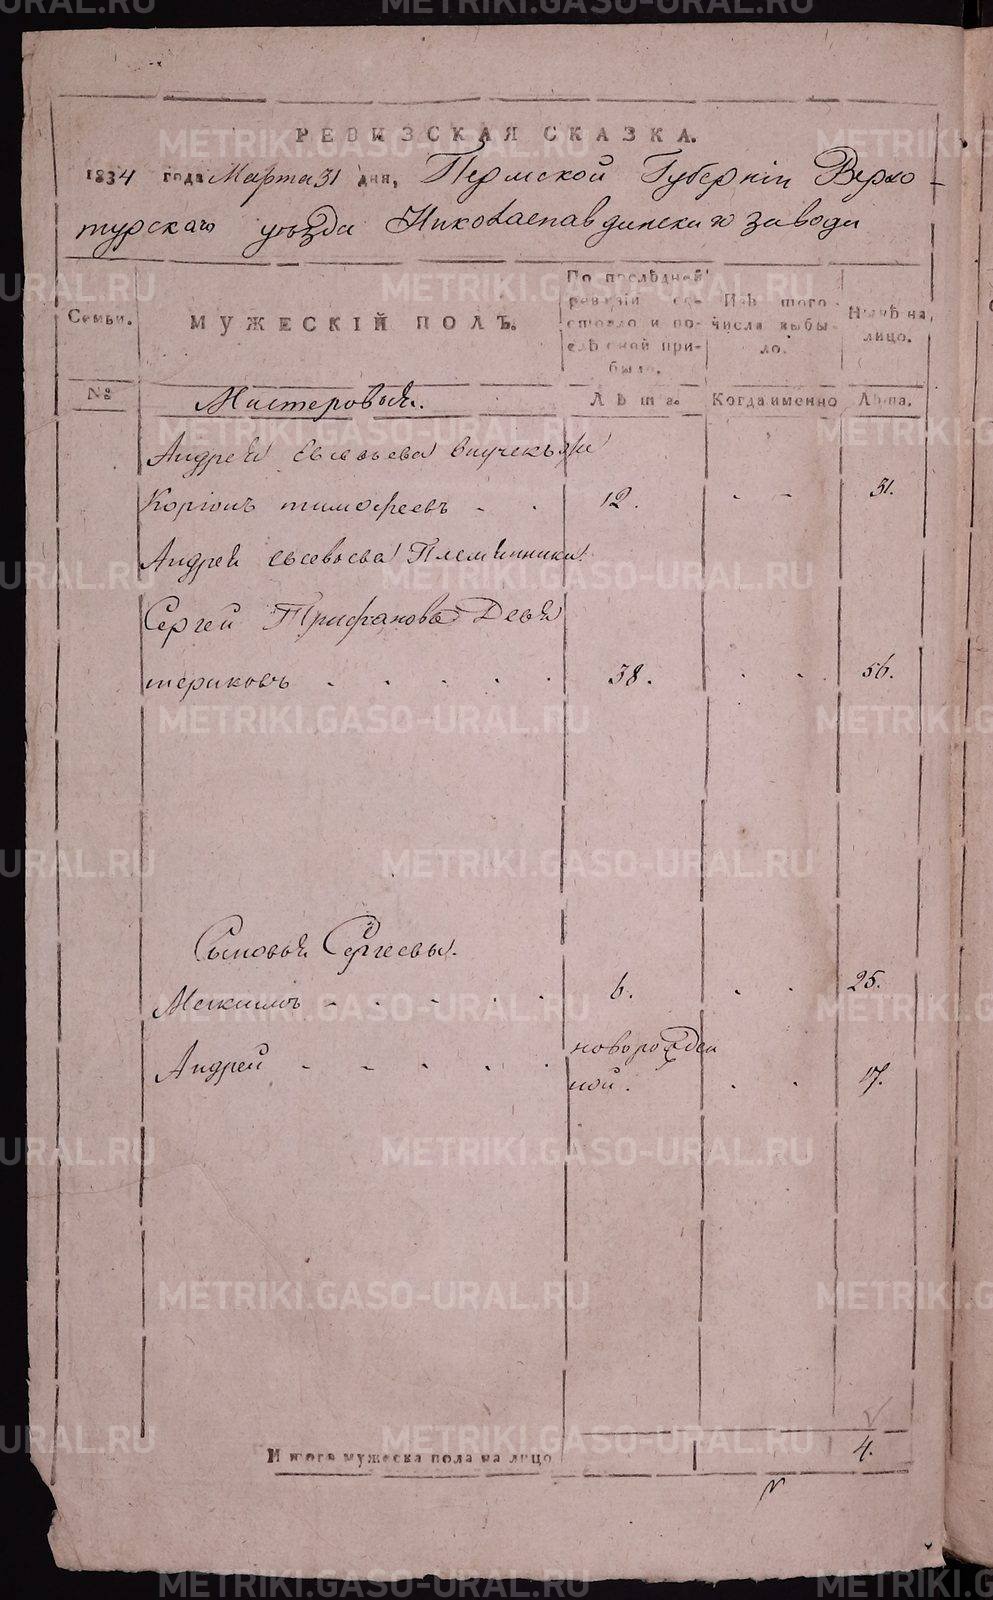 РЕВИЗСКАЯ СКАЗКА.
1834 года Марта 31 дня, Пермской Губерніи Верхо-
турскаго уѣзда Николаепавдинскаго завода
Семьи.
МУЖЕСКІЙ ПОЛЪ.
По послѣдней ревизіи состояло и послѣ оной прибыло.
Изъ того числа выбыло.
Нынѣ на лицо.
№
Мастеровыя.
Лѣта.
Когда именно
Лѣта.
Андрея Евсевьева внучекъ
тимофеевъ - . 12. . - 31.
Андрея евсевьева Племянники
Сергей Трифановъ Девя
териковъ . . . . . 38. . . 56.
Сыновья Сергеевы.
Максимъ - . - . . 6. . . 25.
Андрей . - . . . новорожден
ной. . . 17.
Итого мужеска пола на лицо 4.
METRIKI.GASO-URAL.RU